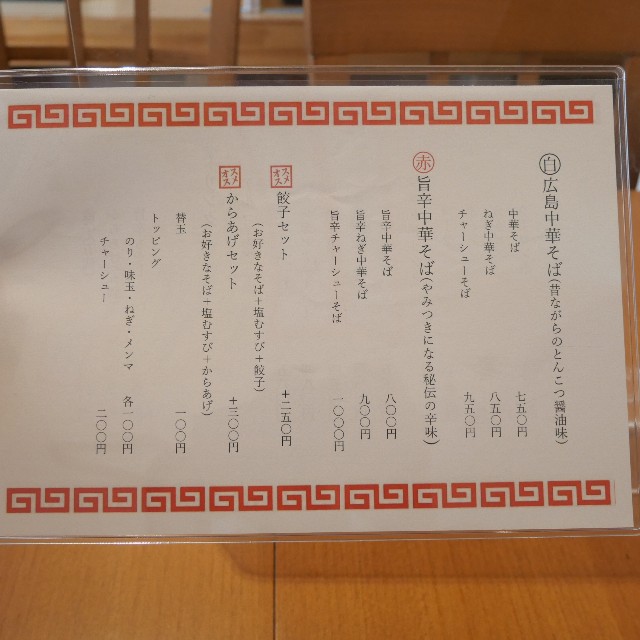 白 広島中華そば(昔ながらのとんこつ醤油味)
中華そば 七五〇円
ねぎ中華そば 八五〇円
チャーシューそば 九五〇円
赤 旨辛中華そば(やみつきになる秘伝の辛味)
旨辛中華そば 八〇〇円
旨辛ねぎ中華そば 九〇〇円
旨辛チャーシューそば 一〇〇〇円
オススメ 餃子セット +二五〇円
(お好きなそば+塩むすび+餃子)
オススメ からあげセット +三〇〇円
(お好きなそば+塩むすび+からあげ)
替玉 一〇〇円
トッピング
のり・味玉・ねぎ・メンマ 各一〇〇円
チャーシュー 二〇〇円